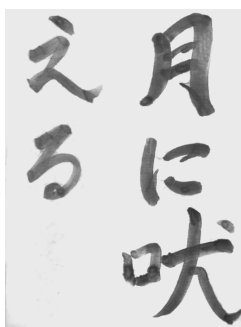 月に吠
える